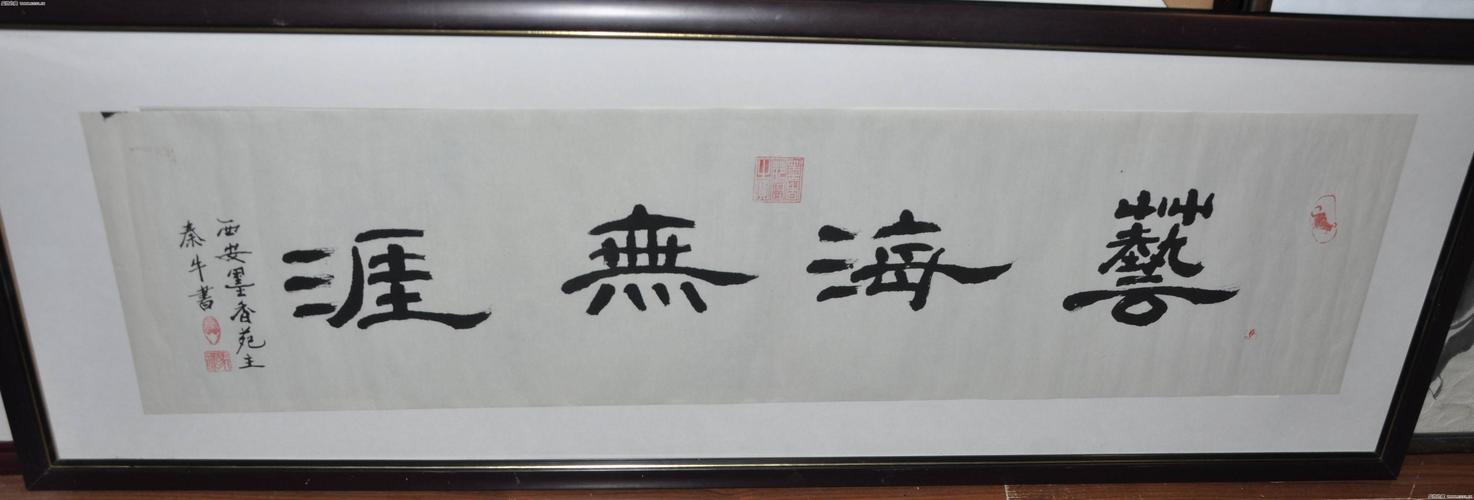 藝海無涯
西安墨香苑主
秦牛書